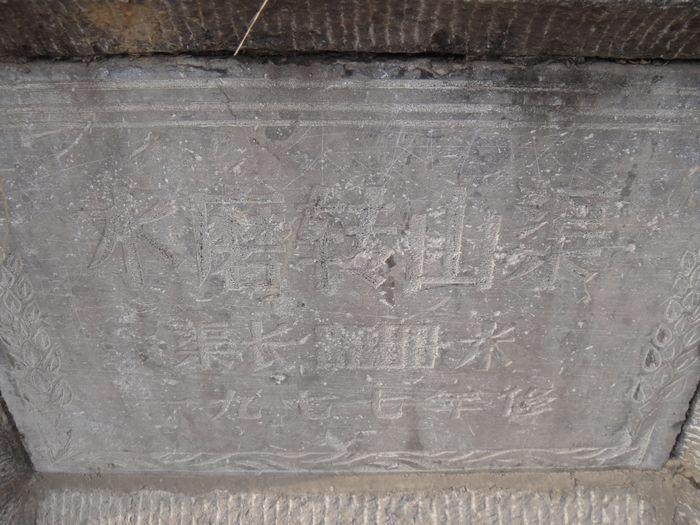 水转山渠
渠长米
一九七七年修